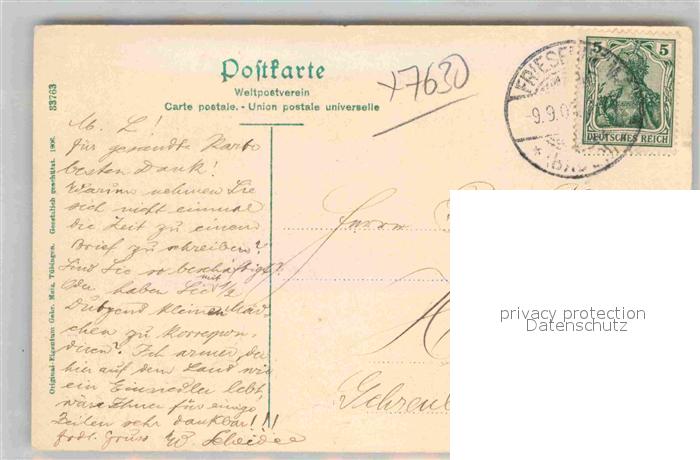 Postkarte
Weltpostverein
Carte postale. - Union postale universelle
x7630
5 5
DEUTSCHES REICH
FRIESE
-9.9.0
* (BADEN)
83763
Original-Eigentum Gebr. Metz, Tübingen. Gesetzlich geschützt. 1906.
M. L!
für gesandte Karte
besten Dank!
Warum nehmen Sie
sich nicht einmal
die Zeit zu einem
Brief zu schreiben?
Sind Sie so beschäftigt?
Oder haben Sie mit 1/2
Dutzend kleinen Mäd-
chen zu korrespon-
dieren? Ich armer, der
hier auf dem Land wie
ein Einsiedler lebt,
wäre Ihnen für einige
Zeilen sehr dankbar!!!
frdl. Gruss W.
Herrn
privacy protection
Datenschutz